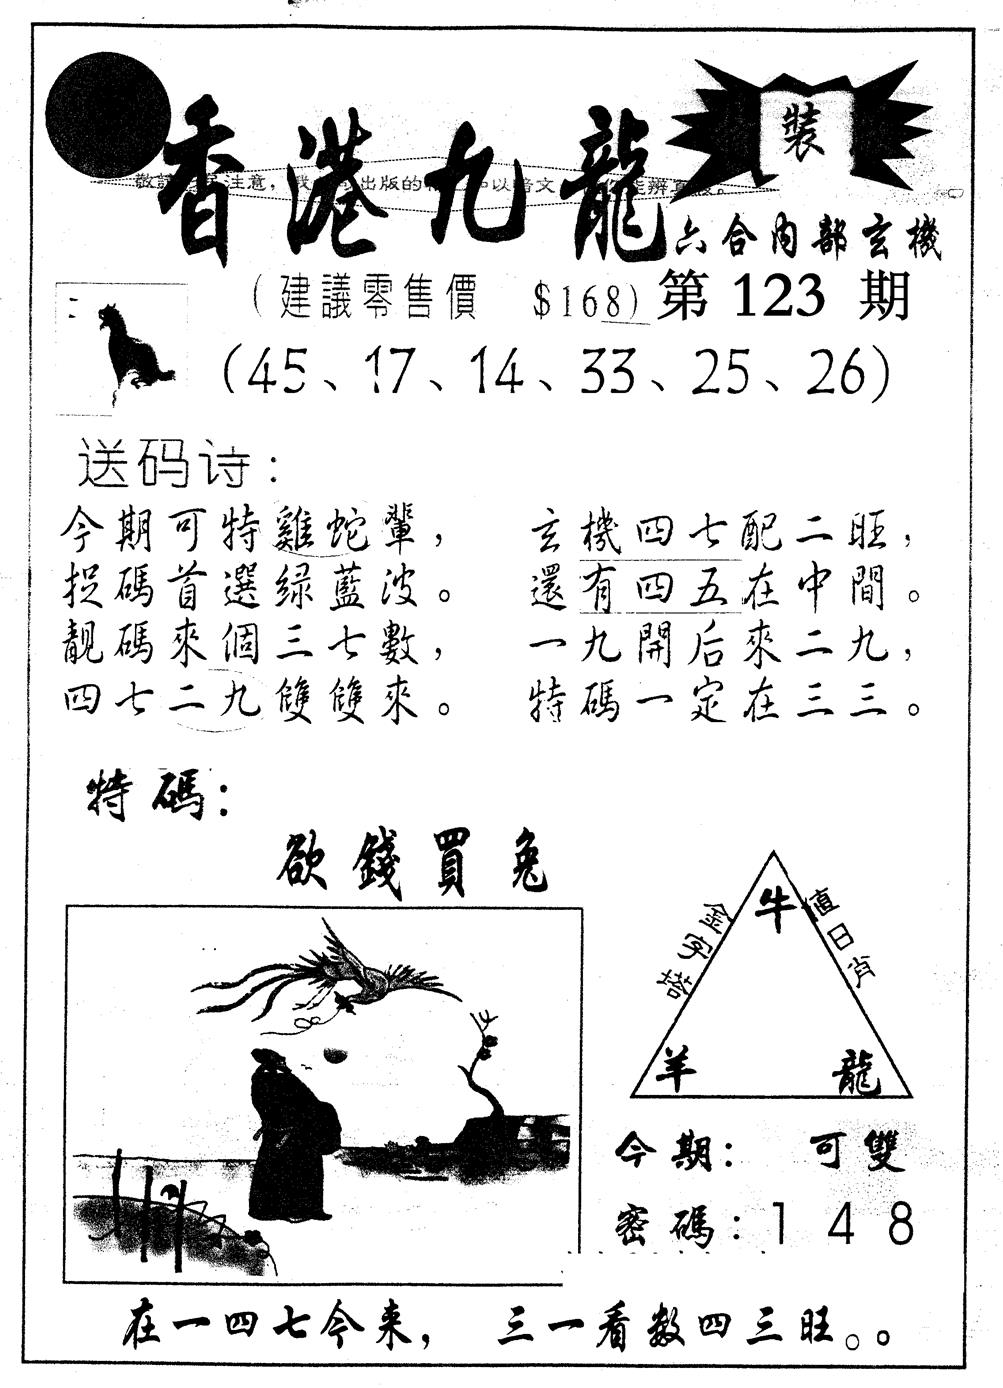 香港九龍
裝
六合內部玄機
(建議零售價 $168) 第 123 期
(45、17、14、33、25、26)
送码诗：
今期可特雞蛇輩， 玄機四七配二旺，
捉碼首選绿藍波。 還有四五在中間。
靚碼來個三七數， 一九開后來二九，
四七二九雙雙來。 特碼一定在三三。
特碼：
欲錢買兔
牛
金字塔
值日肖
羊 龍
今期： 可雙
密碼：1 4 8
在一四七今来， 三一看数四三旺。。